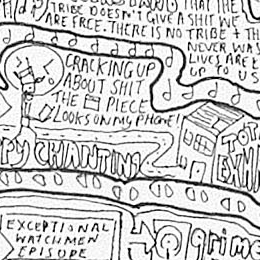 THAT THE
TRIBE DOESN'T GIVE A SHIT WE
ARE FREE. THERE IS NO TRIBE + TH
NEVER WAS
LIVES ARE
UP TO US
CRACKING UP
ABOUT SHIT
THE PIECE
LOOKS ON MY PHONE!
PPY CHANTING
TOT
EXHA
EXCEPTIONAL
WATCHMEN
EPISODE
HQ grime